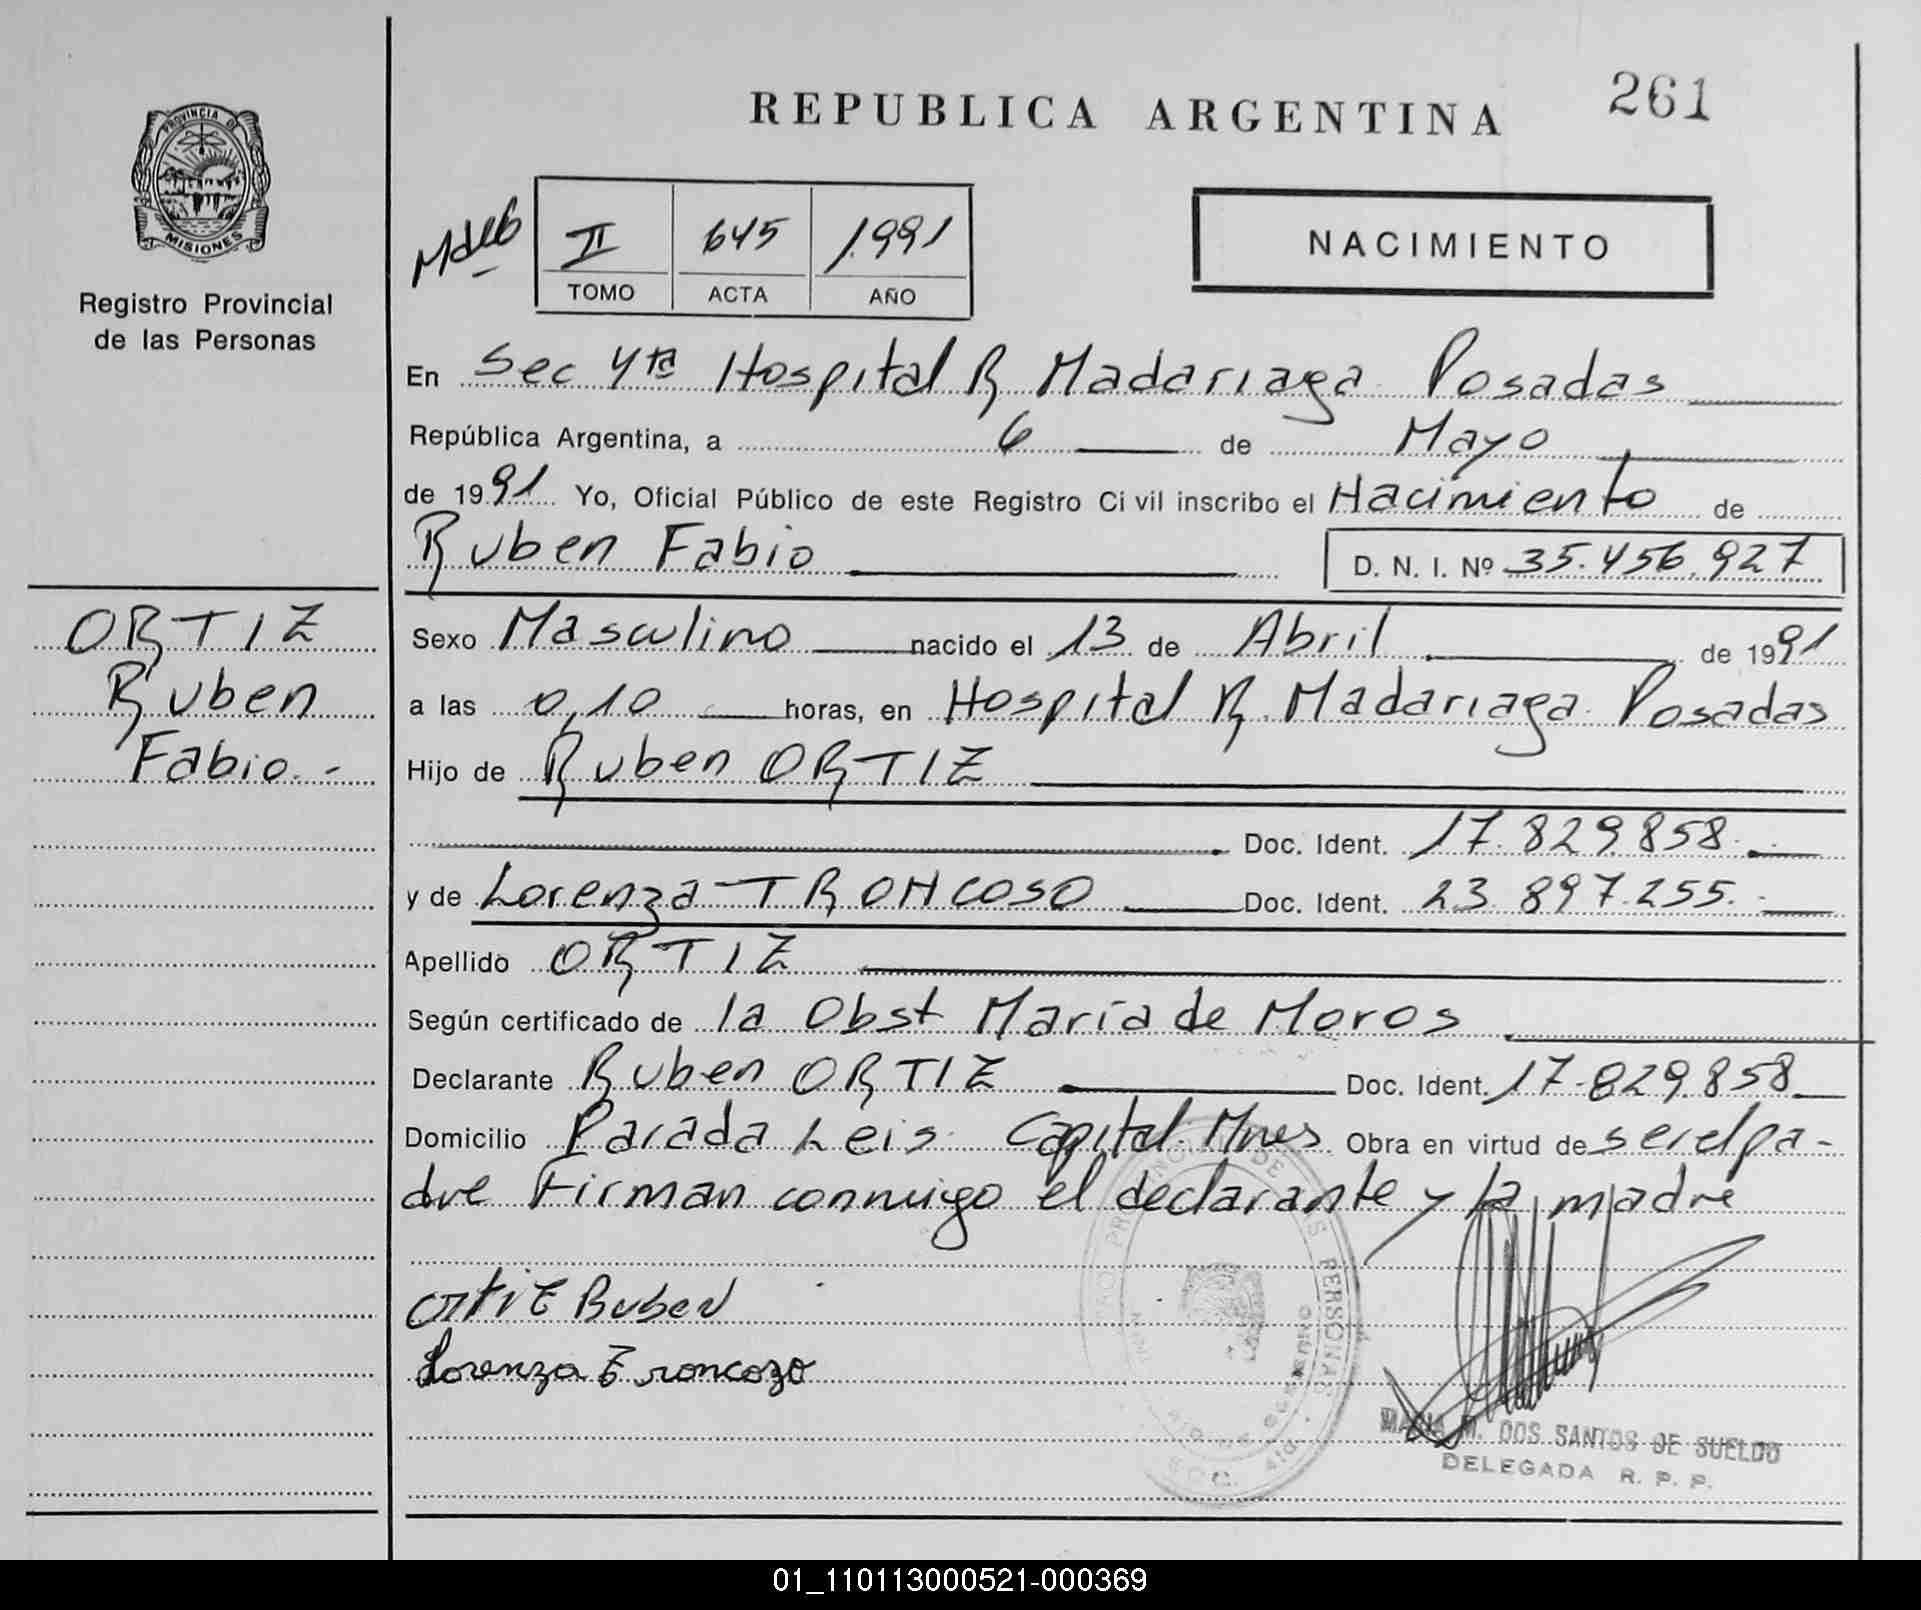 261
REPUBLICA ARGENTINA
PROVINCIA DE
MISIONES
Registro Provincial
de las Personas
II 645 1991
TOMO ACTA AÑO
NACIMIENTO
En Sec 4ta Hospital R Madariaga Posadas
República Argentina, a 6 de Mayo
de 1991 Yo, Oficial Público de este Registro Civil inscribo el Nacimiento de
Ruben Fabio D. N. I. Nº 35.456.927
ORTIZ
Ruben
Fabio.-
Sexo Masculino nacido el 13 de Abril de 1991
a las 0,10 horas, en Hospital R. Madariaga Posadas
Hijo de Ruben ORTIZ
Doc. Ident. 17.829.858.
y de Lorenza TRONCOSO Doc. Ident. 23.897.255.
Apellido ORTIZ
Según certificado de la Obst María de Moros
Declarante Ruben ORTIZ Doc. Ident. 17.829.858
Domicilio Parada Leis Capital Mnes Obra en virtud de ser el pa-
dre Firman conmigo el declarante y la madre
ortiz Ruben
Lorenza Troncozo
MARIA M. DOS SANTOS DE SUELDO
DELEGADA R. P. P.
01_110113000521-000369